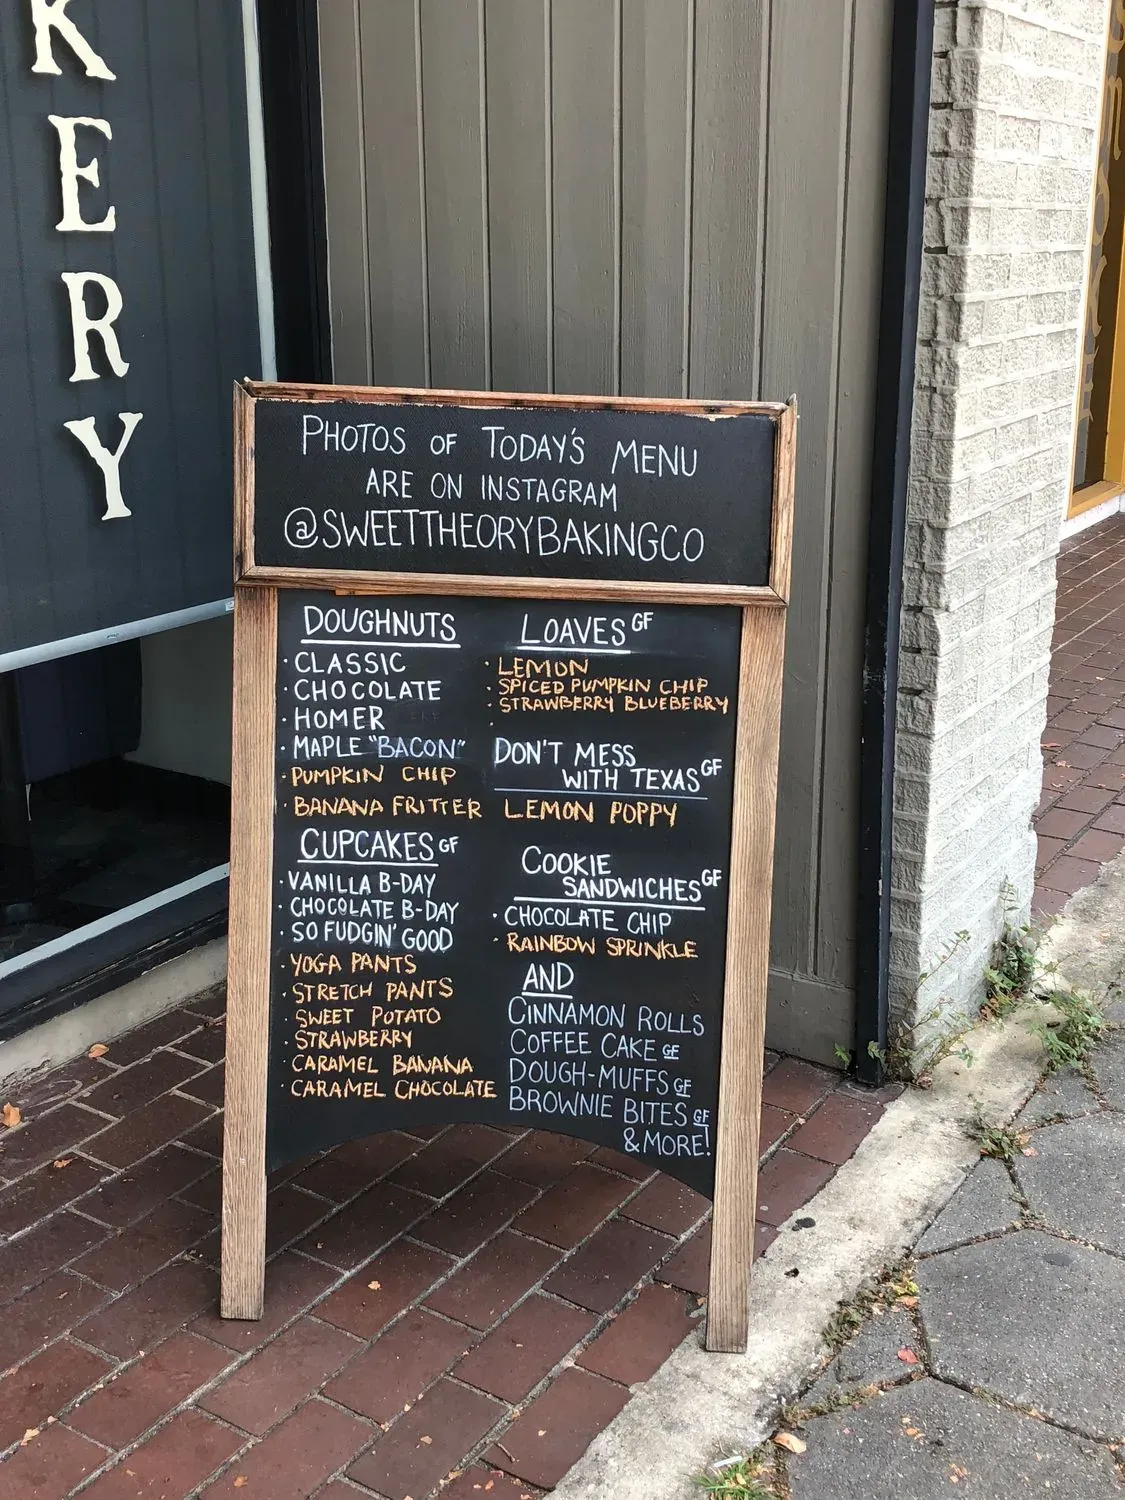 KERY
PHOTOS OF TODAY'S MENU
ARE ON INSTAGRAM
@SWEETTHEORYBAKINGCO
DOUGHNUTS
· CLASSIC
· CHOCOLATE
· HOMER
· MAPLE "BACON"
· PUMPKIN CHIP
· BANANA FRITTER
CUPCAKES GF
· VANILLA B-DAY
· CHOCOLATE B-DAY
· SO FUDGIN' GOOD
· YOGA PANTS
· STRETCH PANTS
· SWEET POTATO
· STRAWBERRY
· CARAMEL BANANA
· CARAMEL CHOCOLATE
LOAVES GF
· LEMON
· SPICED PUMPKIN CHIP
· STRAWBERRY BLUEBERRY
·
DON'T MESS
WITH TEXAS GF
LEMON POPPY
COOKIE
SANDWICHES GF
· CHOCOLATE CHIP
· RAINBOW SPRINKLE
AND
CINNAMON ROLLS
COFFEE CAKE GF
DOUGH-MUFFS GF
BROWNIE BITES GF
& MORE!